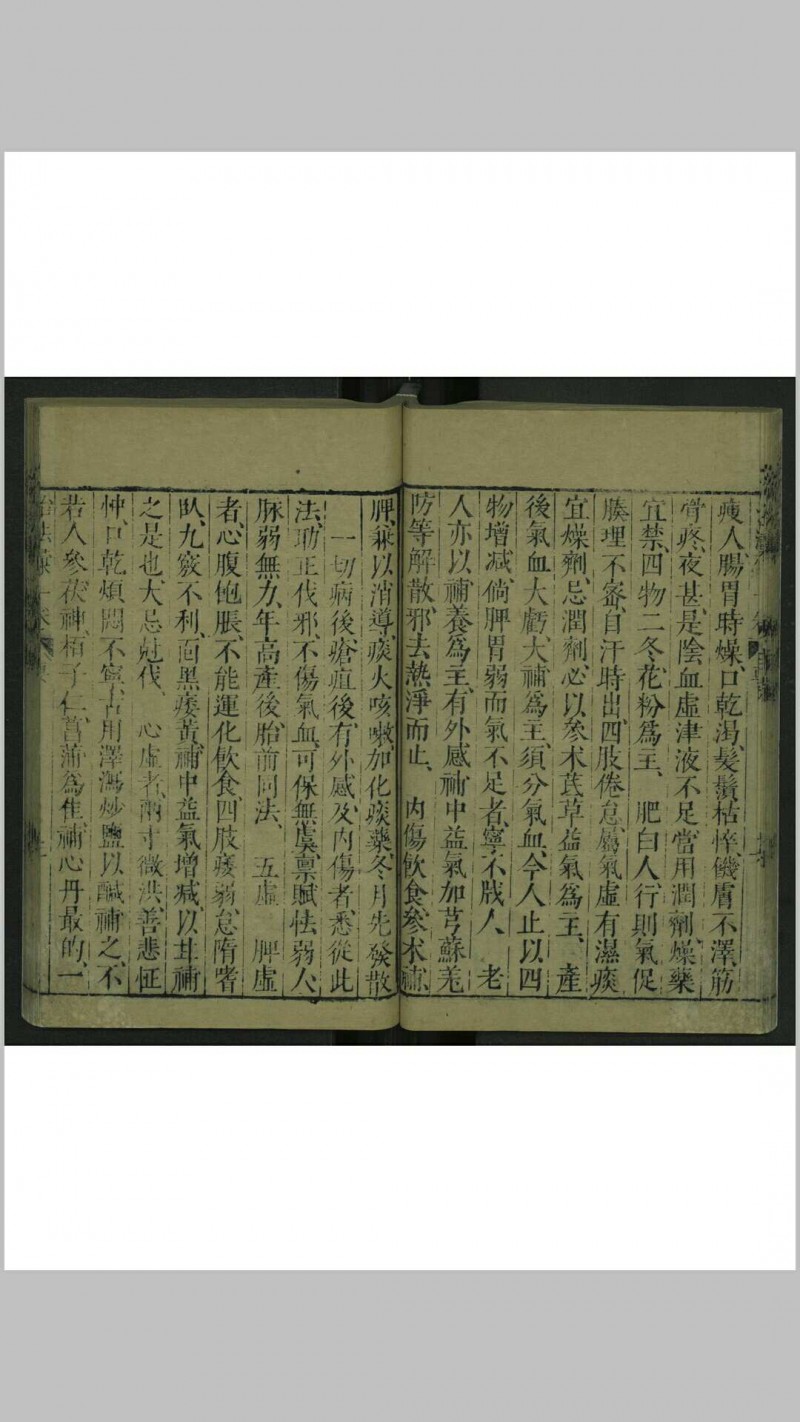 瘦人腸胃時燥、口乾渴、髮鬚枯悴、僟膚不澤、筋
骨疼、夜甚、是陰血虛、津液不足、當用潤劑、燥藥
宜禁、四物二冬花粉爲主、　肥白人、行則氣促
腠理不密、自汗時出、四肢倦怠、屬氣虛有濕痰
宜燥劑、忌潤劑、必以參朮芪草益氣爲主、　產
後氣血大虧、大補爲主、須分氣血、今人止以四
物增減、倘脾胃弱而氣不足者、寧不戕人　老
人亦以補養爲主、有外感、補中益氣加芎蘇羌
防等解散、邪去熱淨而止、　內傷飲食、參朮補
脾、兼以消導、痰火咳嗽、加化痰藥、冬月先發散
　一切病後、瘡疽後、有外感及內傷者、悉從此
法、扶正伐邪、不傷氣血、可保無虞、禀賦怯弱人、
脉弱無力、年高產後胎前同法、　五虛　脾虛
者、心腹飽脹、不能運化飲食、四肢痿弱、怠隋嗜
臥、九竅不利、面黑痿黃、補中益氣增減、以甘補
之是也、大忌尅伐、　心虛者、兩寸微洪、善悲怔
忡、口乾煩悶不寧、古用澤瀉炒鹽以鹹補之、不
若人參茯神、栢子仁、菖蒲為佳、補心丹最的、一